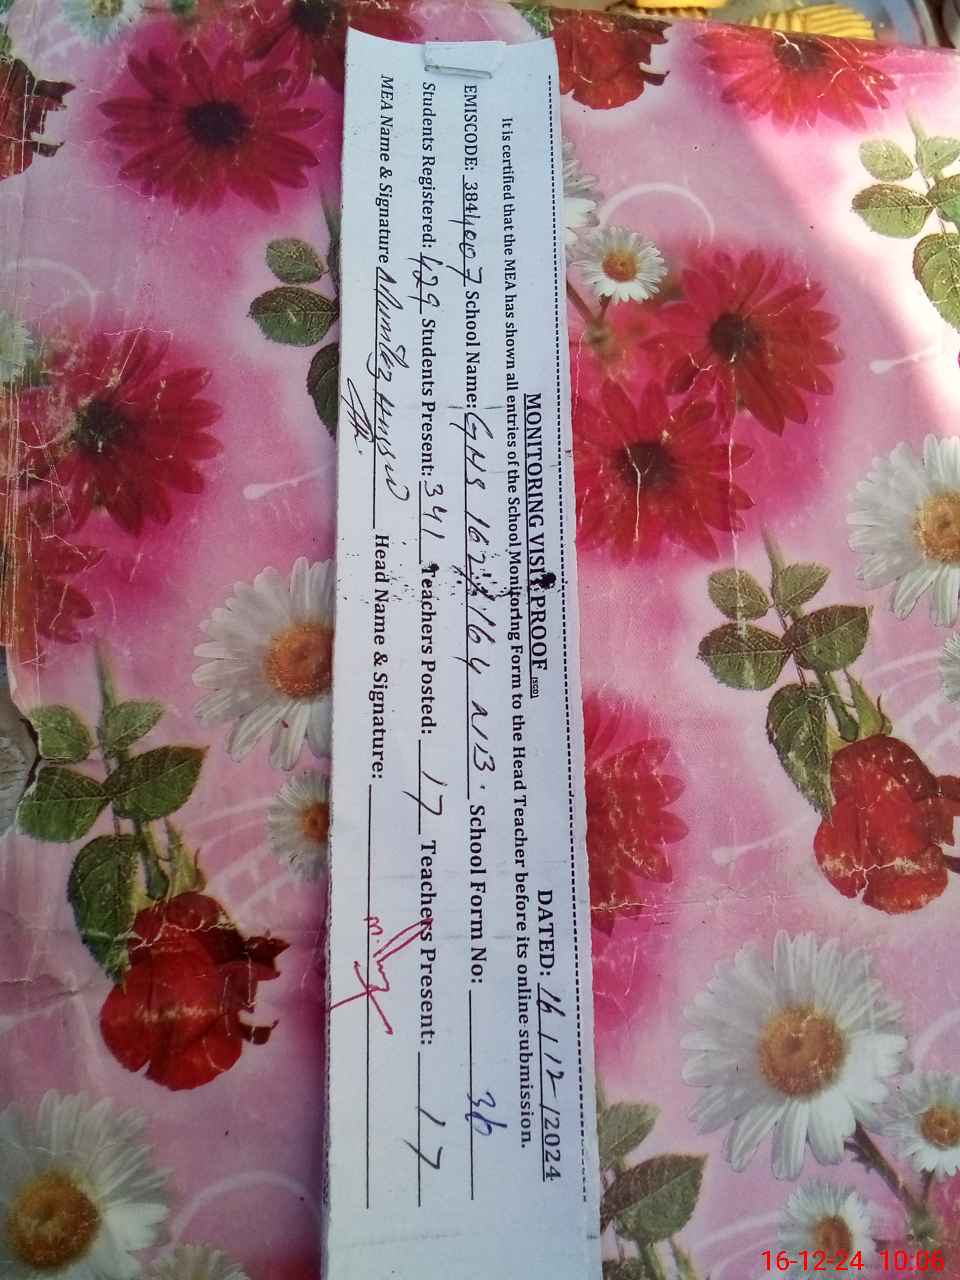 MONITORING VISIT PROOF (SCO) DATED: 16/12/2024
It is certified that the MEA has shown all entries of the School Monitoring Form to the Head Teacher before its online submission.
EMISCODE: 3844007 School Name: GHS 162/164 N/B. School Form No: 36
Students Registered: 429 Students Present: 341 Teachers Posted: 17 Teachers Present: 17
MEA Name & Signature Hussain Head Name & Signature:
16-12-24 10:06